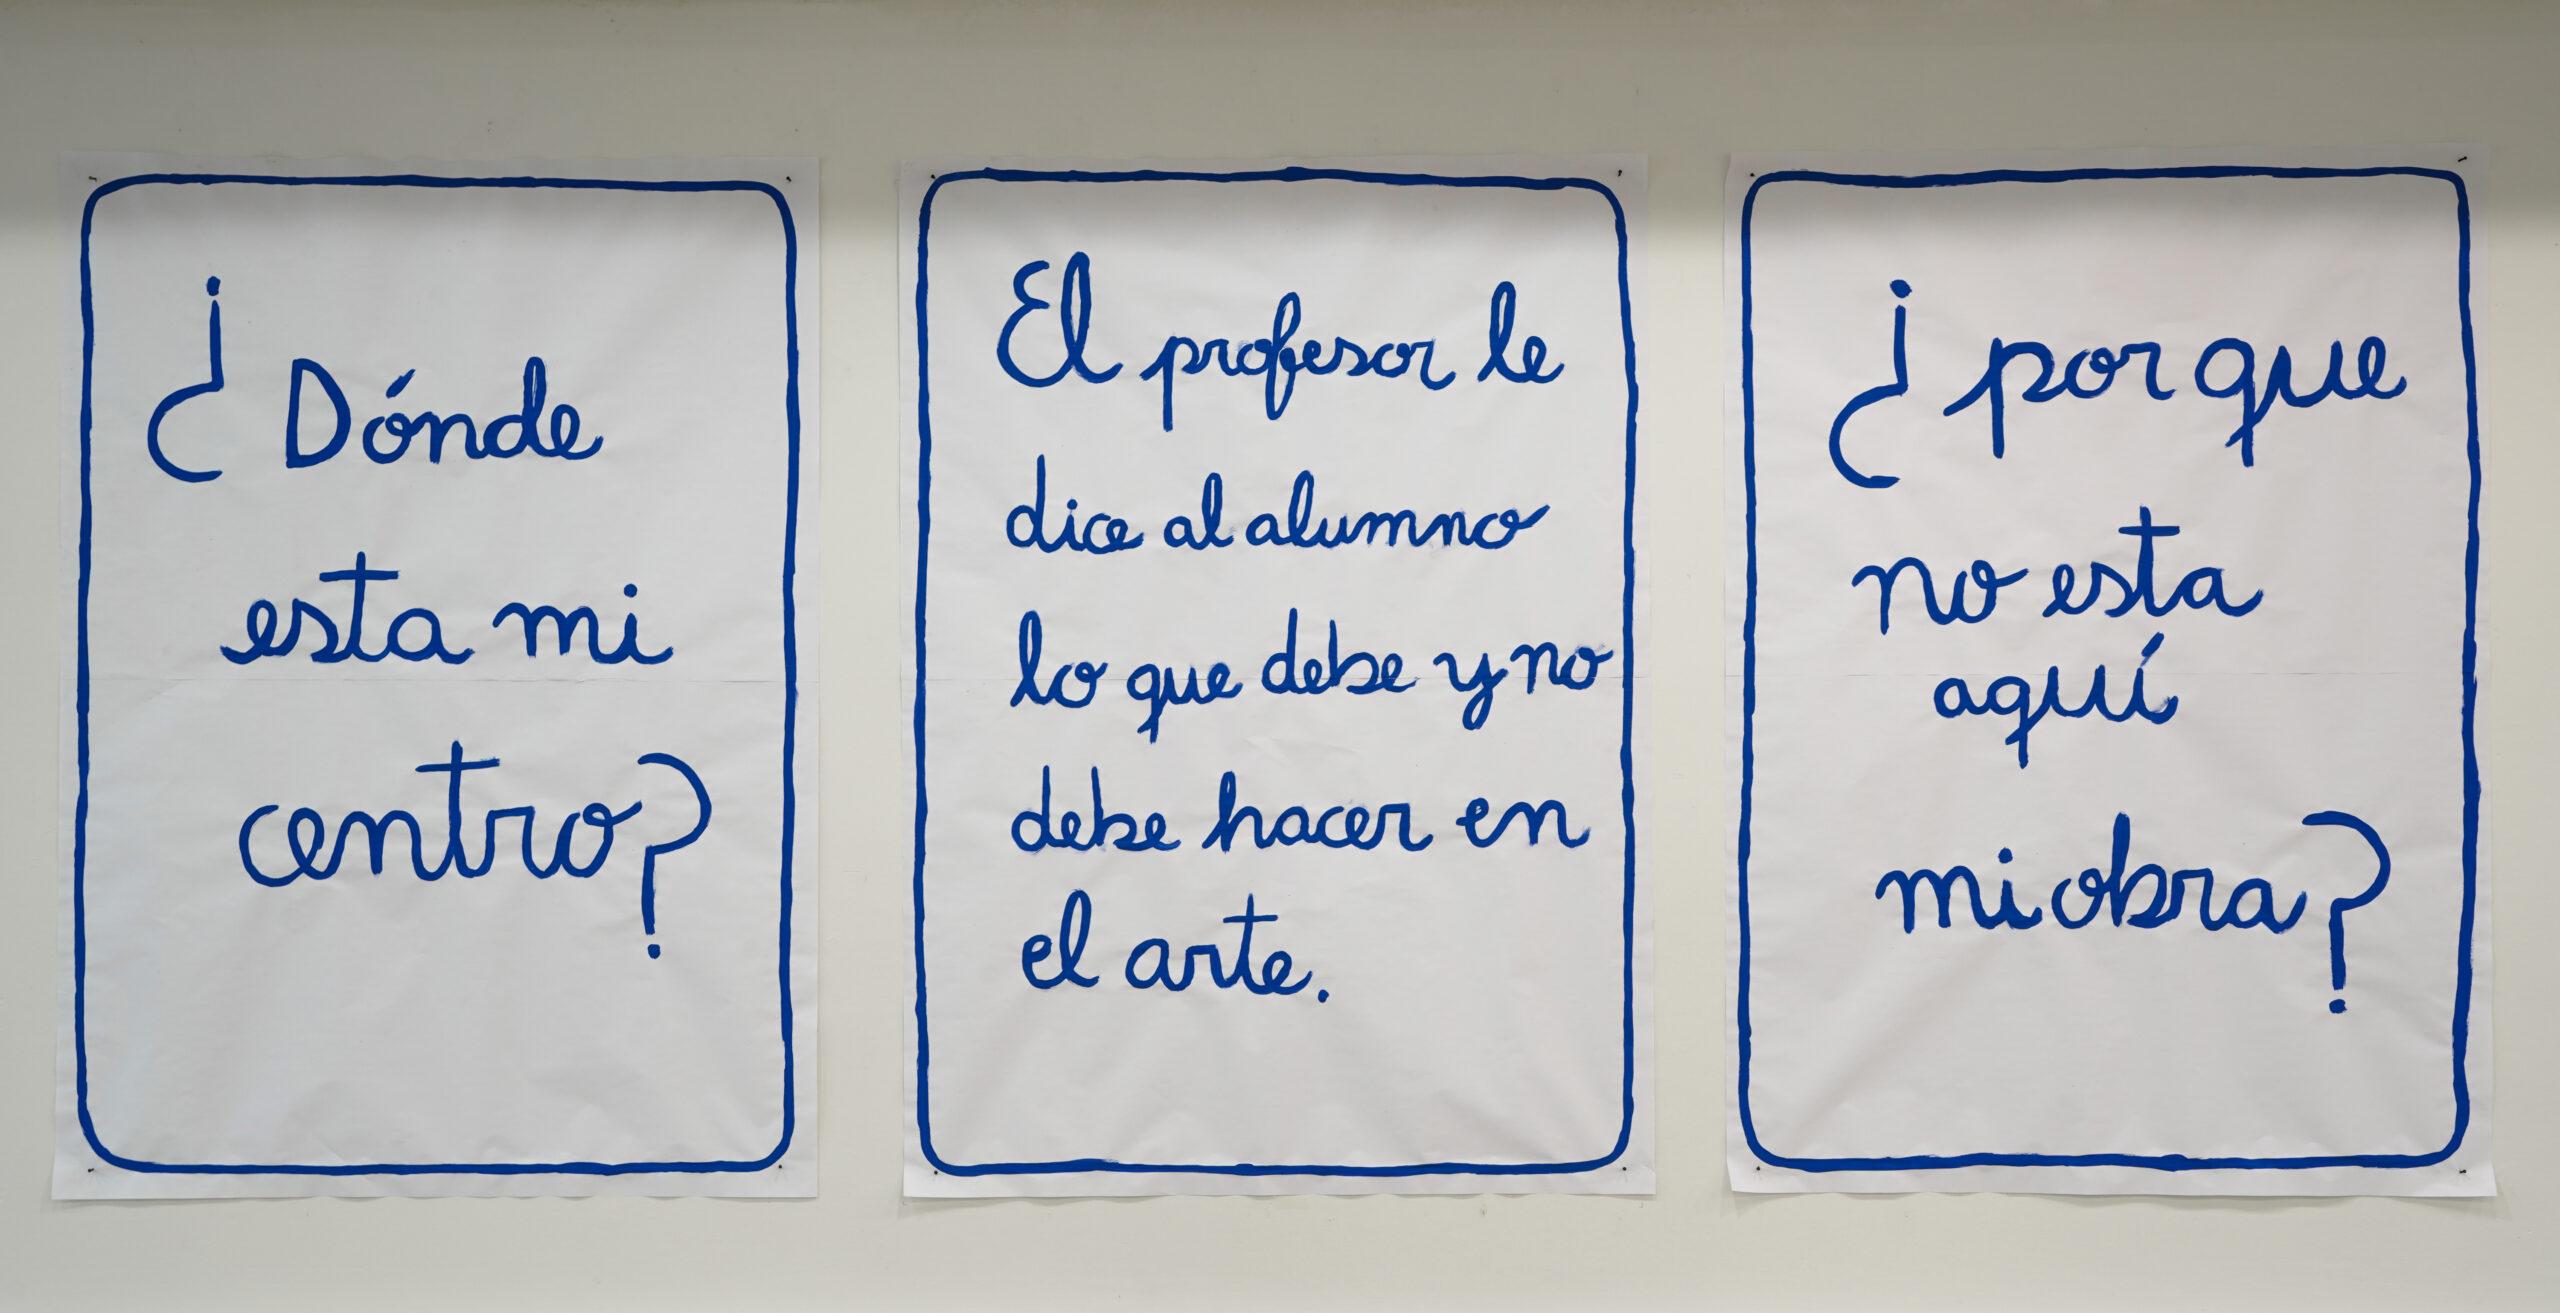 ¿Dónde
esta mi
centro?
El profesor le
dice al alumno
lo que debe y no
debe hacer en
el arte.
¿por que
no esta
aquí
mi obra?